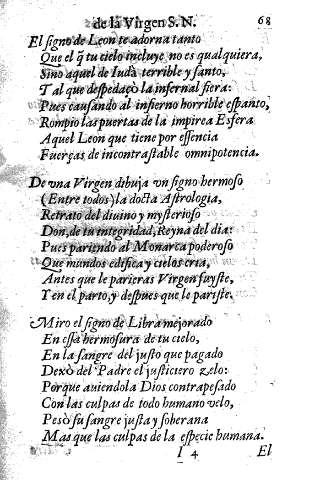 de la Virgen S. N. 68
El signo de Leon te adorna tanto
Que el q̃ tu cielo incluye no es qualquiera,
Sino aquel de Iuda terrible y santo,
Tal que despedaçò la infernal fiera:
Pues causando al infierno horrible espanto,
Rompio las puertas de la impirea Esfera
Aquel Leon que tiene por essencia
Fuerças de incontrastable omnipotencia.
De vna Virgen dibuja vn signo hermoso
(Entre todos) la docta Astrologia,
Retrato del diuino y mysterioso
Don, de tu integridad, Reyna del dia:
Pues pariendo al Monarca poderoso
Que mundos edifica y cielos cria,
Antes que le parieras Virgen fuyste,
Y en el parto, y despues que le pariste.
Miro el signo de Libra mejorado
En essa hermosura de tu cielo,
En la sangre del justo que pagado
Dexò del Padre el justiciero zelo:
Porque auiendola Dios contrapesado
Con las culpas de todo humano velo,
Pesò su sangre justa y soberana
Mas que las culpas de la especie humana.
I 4 El